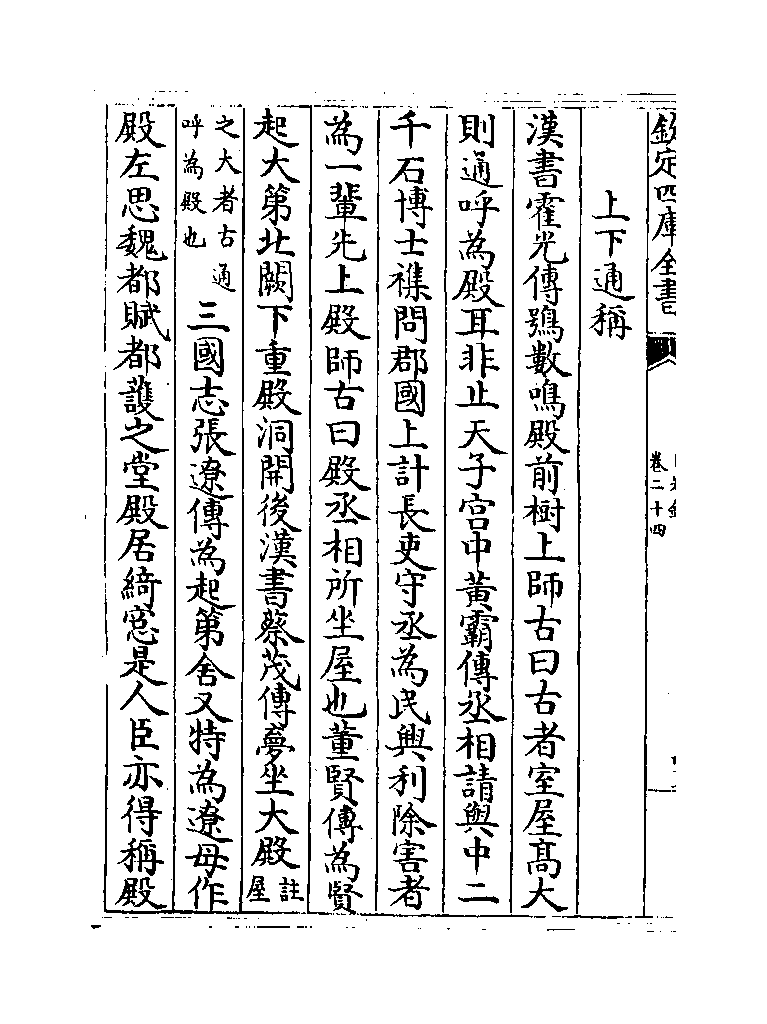 欽定四庫全書
卷二十四
上下通稱
漢書霍光傳鴞數鳴殿前樹上師古曰古者室屋髙大
則通呼為殿耳非止天子宫中黄霸傳丞相請與中二
千石博士襍問郡國上計長吏守丞為民興利除害者
為一輩先上殿師古曰殿丞相所坐屋也董賢傳為賢
起大第北闕下重殿洞開後漢書蔡茂傳夢坐大殿註屋
之大者古通呼為殿也三國志張遼傳為起第舍又特為遼母作
殿左思魏都賦都護之堂殿居綺窓是人臣亦得稱殿